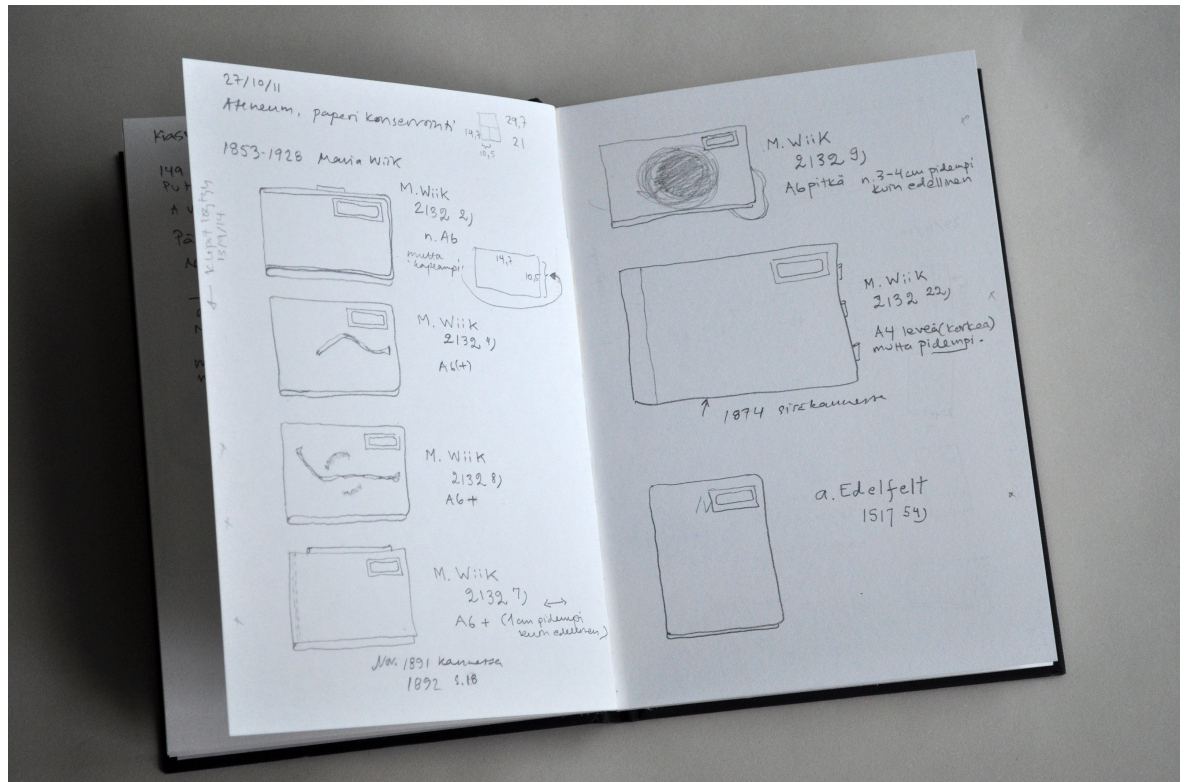 27/10/11
Ateneum, paperi konservointi
29,7
14,7 21
10,5
1853-1928 Maria Wiik
13/9/14
M. Wiik
2132 2)
n. A6
mutta
kapeampi
14,7
10,5
M. Wiik
2132 4)
A6(+)
M. Wiik
2132 8)
A6+
M. Wiik
2132 7)
A6+ (1cm pidempi
kuin edellinen)
Nov. 1891 kannessa
1892 s.18
M. Wiik
2132 9)
A6 pitkä n. 3-4cm pidempi
kuin edellinen
M. Wiik
2132 22)
A4 leveä (korkea)
mutta pidempi.
1874
a. Edelfelt
1517 54)